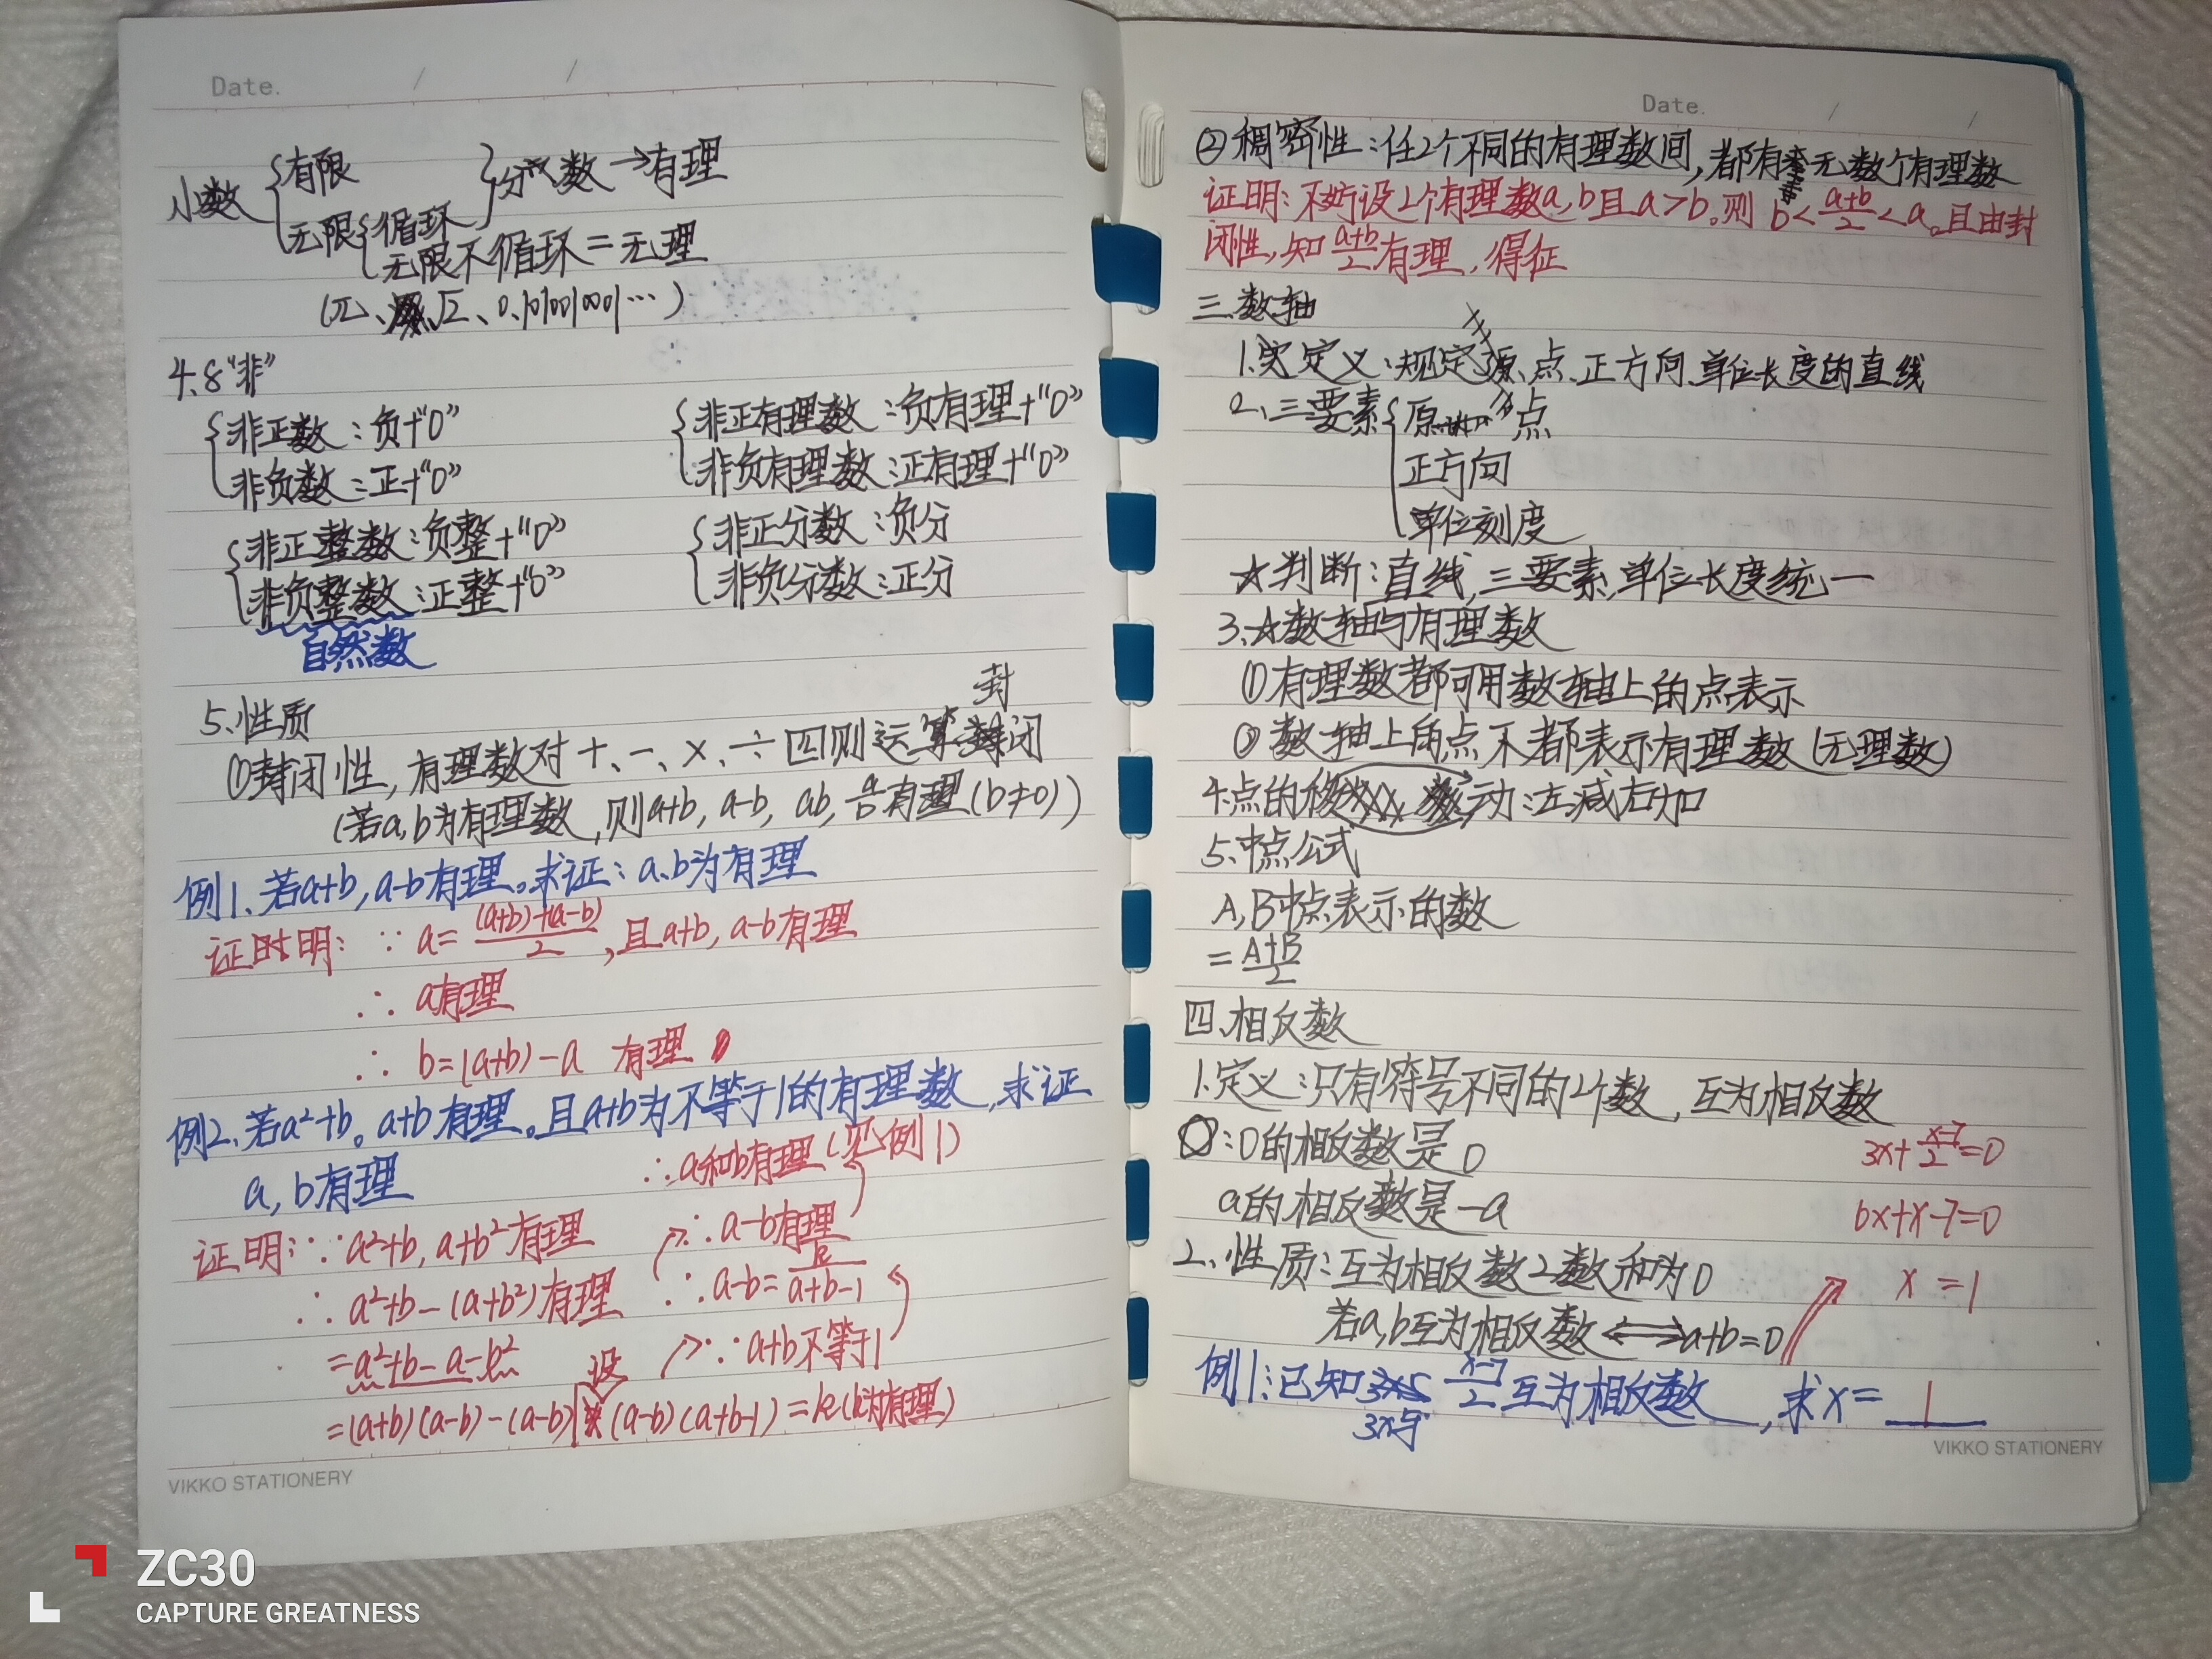 Date. / /
小数 { 有限 } 分数 → 有理
无限 { 循环
无限不循环 = 无理
(π、√2、0.1010010001…)
4.8“非”
{ 非正数:负+“0”
非负数:正+“0”
{ 非正有理数:负有理+“0”
非负有理数:正有理+“0”
{ 非正整数:负整+“0”
非负整数:正整+“0”
自然数
{ 非正分数:负分
非负分数:正分
5.性质
封
①封闭性,有理数对+、-、×、÷四则运算封闭
(若a,b为有理数,则a+b, a-b, ab, a/b有理(b≠0))
例1.若a+b, a-b有理。求证:a、b为有理
证明: ∵ a= (a+b)+(a-b)/2 ,且a+b, a-b有理
∴ a有理
∴ b=(a+b)-a 有理
例2.若a²+b。a+b有理。且a+b为不等于1的有理数,求证
a,b有理
证明:∵a²+b, a+b²有理
∴ a²+b-(a+b²)有理
=a²+b-a-b²
=(a+b)(a-b)-(a-b) 设 (a-b)(a+b-1)=k(k为有理)
∵a+b不等于1
∴ a-b= k/a+b-1
∴ a-b有理
∴a和b有理(见例1)
VIKKO STATIONERY
Date. / /
②稠密性:任2个不同的有理数间,都有无数个有理数
证明:不妨设2个有理数a,b且a>b。则 b< a+b/2 <a。且由封
闭性,知 a+b/2 有理,得征
三.数轴
1.定义:规定原点、正方向、单位长度的直线
2、三要素 { 原点
正方向
单位刻度
☆判断:直线,三要素,单位长度统一
3.☆数轴与有理数
①有理数都可用数轴上的点表示
②数轴上的点不都表示有理数(无理数)
4.点的移动:左减右加
5.中点公式
A,B中点表示的数
= A+B/2
四.相反数
1.定义:只有符号不同的2个数,互为相反数
:0的相反数是0
a的相反数是-a
2、性质:互为相反数2数和为0
若a,b互为相反数⟺a+b=0
3x+ x-7/2 =0
6x+x-7=0
x =1
例1:已知3x与 x-7/2 互为相反数,求x= 1
VIKKO STATIONERY
ZC30
CAPTURE GREATNESS